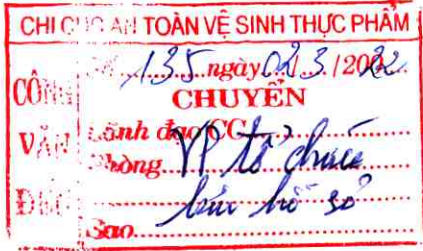 CHI CỤC AN TOÀN VỆ SINH THỰC PHẨM
Số 135 ngày 02/3/2022
CÔNG VĂN ĐẾN
CHUYỂN
Lãnh đạo CC
Phòng VP tổ chức
lưu hồ sơ
Sao